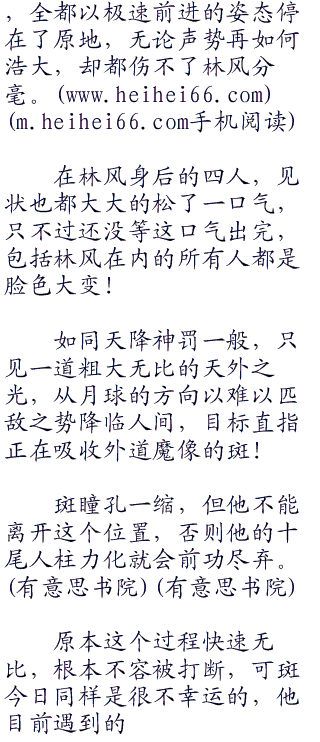 ，全都以极速前进的姿态停
在了原地，无论声势再如何
浩大，却都伤不了林风分
毫。(www.heihei66.com)
(m.heihei66.com手机阅读)
在林风身后的四人，见
状也都大大的松了一口气，
只不过还没等这口气出完，
包括林风在内的所有人都是
脸色大变！
如同天降神罚一般，只
见一道粗大无比的天外之
光，从月球的方向以难以匹
敌之势降临人间，目标直指
正在吸收外道魔像的斑！
斑瞳孔一缩，但他不能
离开这个位置，否则他的十
尾人柱力化就会前功尽弃。
(有意思书院)(有意思书院)
原本这个过程快速无
比，根本不容被打断，可斑
今日同样是很不幸运的，他
目前遇到的